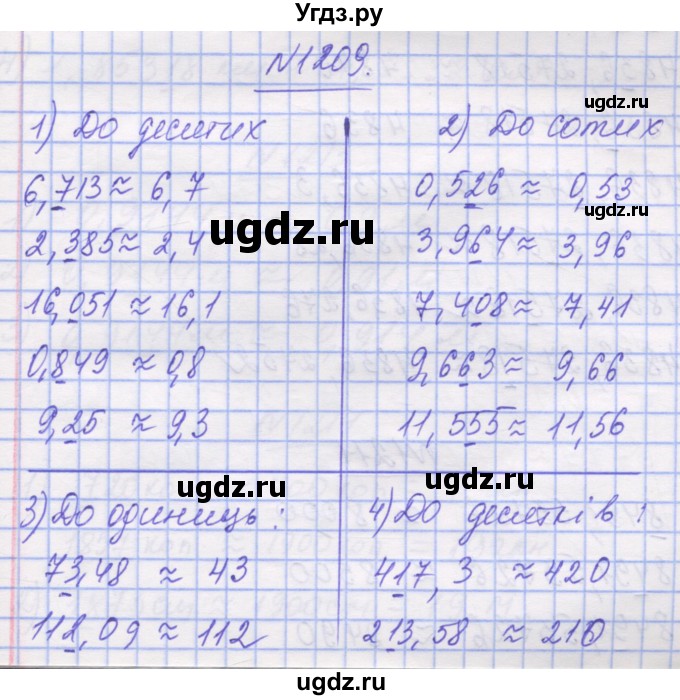 Угдз.ру
№1209.
ugdz.ru
1) До десятих
6,713 ≈ 6,7
2,385 ≈ 2,4
16,051 ≈ 16,1
0,849 ≈ 0,8
9,25 ≈ 9,3
2) До сотих
0,526 ≈ 0,53
3,964 ≈ 3,96
7,408 ≈ 7,41
9,663 ≈ 9,66
11,555 ≈ 11,56
ugdz.ru
ugdz.ru
ugdz.ru
ugdz.ru
ugdz.ru
ugdz.ru
ugdz.ru
3) До одиниць:
73,48 ≈ 43
112,09 ≈ 112
4) До десятків:
417,3 ≈ 420
213,58 ≈ 210
ugdz.ru
ugdz.ru
ugdz.ru